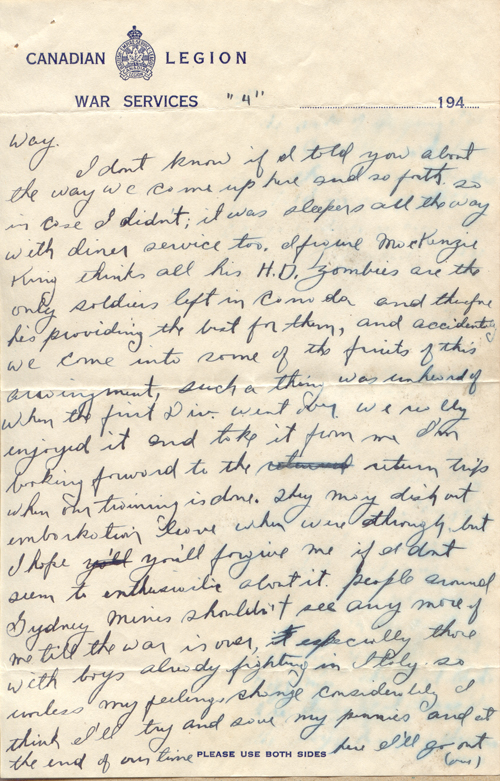 CANADIAN LEGION
WAR SERVICES "4" 194
Way.
I dont know if I told you about
the way we come up here and so forth. so
in case I didn't; it was sleepers all the way
with diner service too. I figure MacKenzie
King thinks all his H.D. zombies are the
only soldiers left in Canada and therefore
hes providing the best for them, and accidently
we come into some of the fruits of this
arraingment, such a thing was unheard of
when the first Div. went over. we really
enjoyed it and take it from me I'm
looking forward to the returned return trip
when our training is done. they may dish out
embarkation leave when were through but
I hope you'll you'll forgive me if I dont
seem to enthusiastic about it. people around
Sydney Mines shouldn't see any more of
me till the war is over, especially those
with boys already fighting in Italy. so
unless my feelings change considerably I
think I'll try and save my pennies and at
the end of our time here I'll go out
PLEASE USE BOTH SIDES
(over)